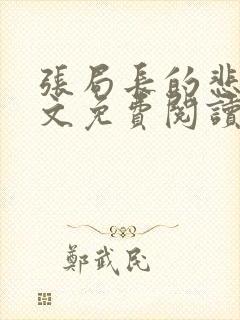 張局長的悲
文免費閱讀
鄭武民